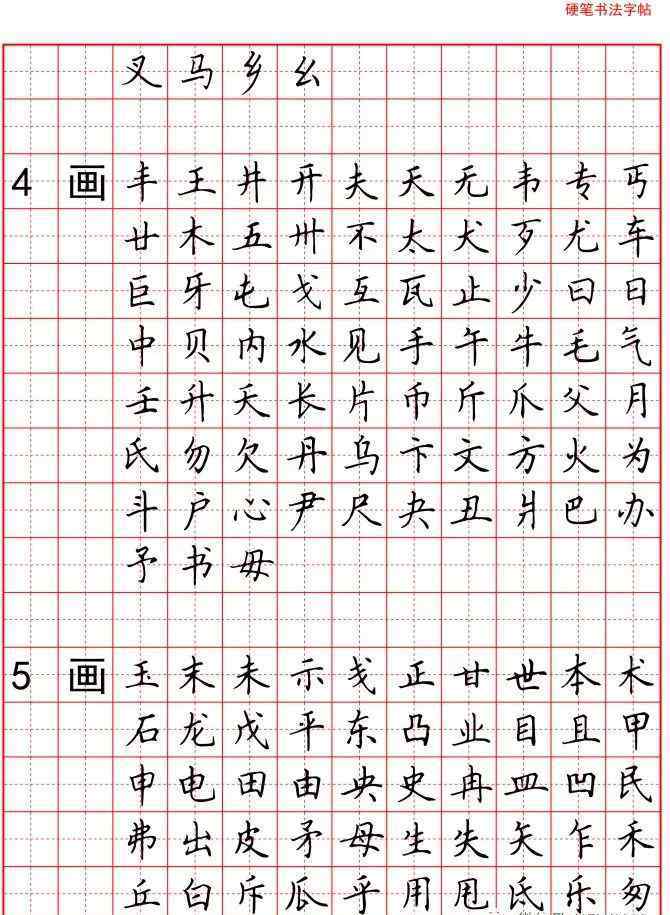 硬笔书法字帖
叉马乡幺
4画丰王井开夫天无韦专丐
廿木五卅不太犬歹尤车
巨牙屯戈互瓦止少曰日
中贝内水见手午牛毛气
壬升夭长片币斤爪父月
氏勿欠丹乌卞文方火为
斗户心尹尺夬丑爿巴办
予书毋
5画玉末未示戋正甘世本术
石龙戊平东凸业目且甲
申电田由央史冉皿凹民
弗出皮矛母生失矢乍禾
丘白斥瓜乎用甩氐乐匆